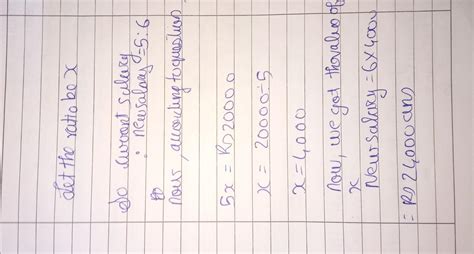 Let the ratio be x
So current salary
: new salary = 5:6
Now, according to question
5x = Rs 20000
x = 20000÷5
x = 4,000
Now, we got the value of
x
New salary = 6x4000
= Rs 24,000 ans